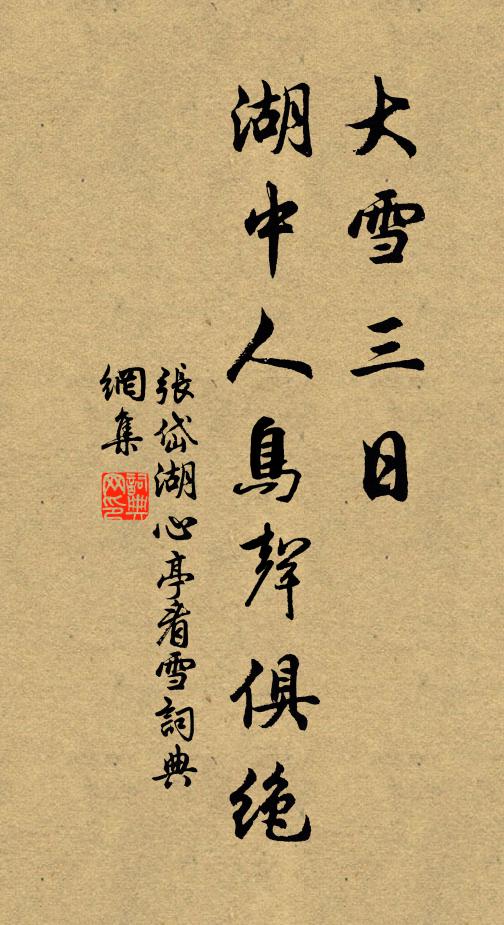 大雪三日
湖中人鳥聲俱絕
張岱湖心亭看雪詞典
網集
詞典
网印